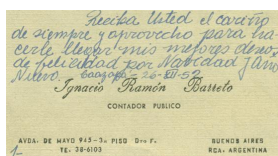 Reciba Usted el cariño
de siempre y aprovecho para ha-
cerle llegar mis mejores deseos
de felicidad por Navidad y Año
Nuevo. Caazapá - 26-XII-52
Ignacio Ramón Barreto
CONTADOR PUBLICO
AVDA. DE MAYO 945-3o. PISO Dto F. BUENOS AIRES
TE. 38-6103 RCA. ARGENTINA
1-